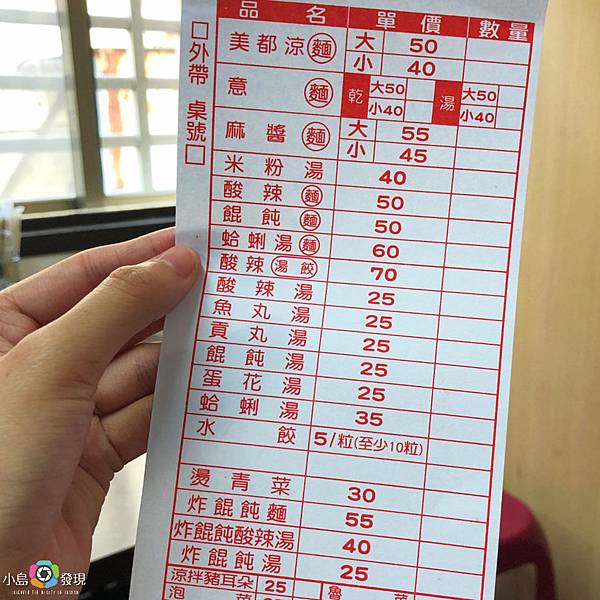 品名 單價 數量
□外帶 桌號□
美都涼麵 大 50
小 40
意麵 乾 大50 湯 大50
小40 小40
麻醬麵 大 55
小 45
米粉湯 40
酸辣麵 50
餛飩麵 50
蛤蜊湯麵 60
酸辣湯餃 70
酸辣湯 25
魚丸湯 25
貢丸湯 25
餛飩湯 25
蛋花湯 25
蛤蜊湯 35
水餃 5/粒(至少10粒)
燙青菜 30
炸餛飩麵 55
炸餛飩酸辣湯 40
炸餛飩湯 25
涼拌豬耳朵 25
泡菜
小島發現